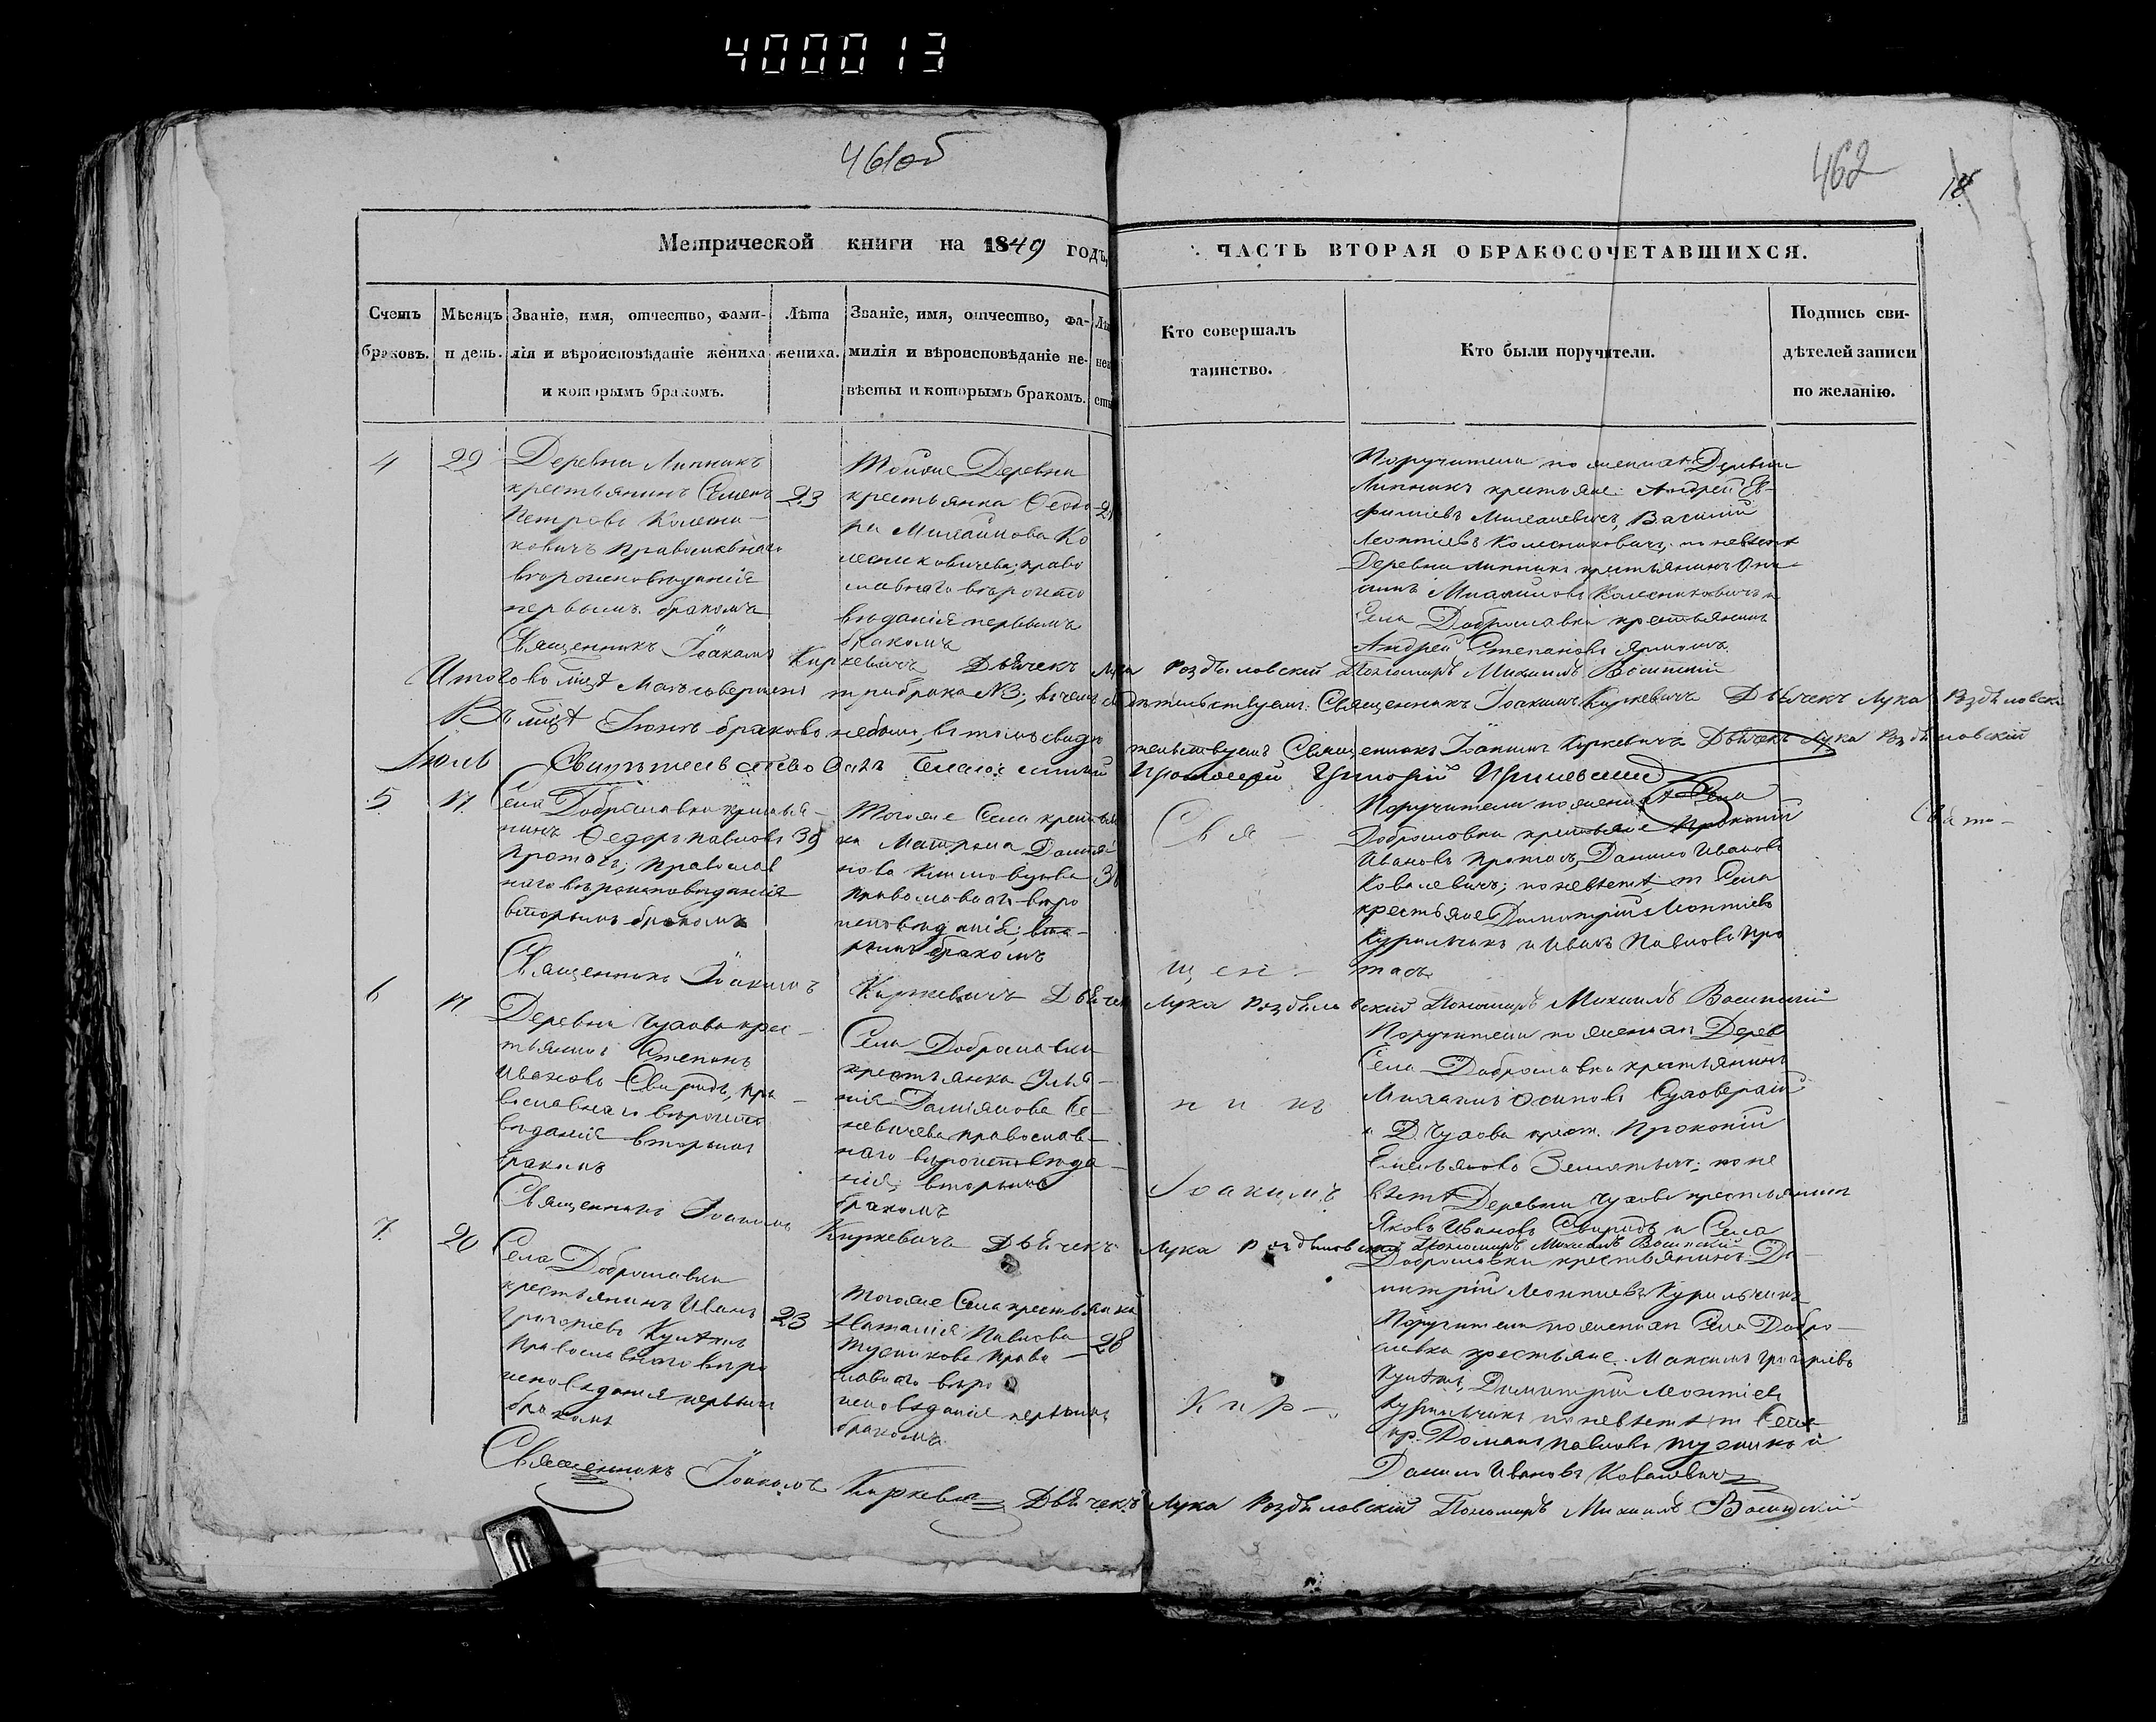 400013
461об
462
18
Метрической книги на 1849 годъ,
ЧАСТЬ ВТОРАЯ О БРАКОСОЧЕТАВШИХСЯ.
Счетъ браковъ.
Мѣсяцъ и день.
Званіе, имя, отчество, фами-
лія и вѣроисповѣданіе жениха
и которымъ бракомъ.
Лѣта
жениха.
Званіе, имя, отчество, фа-
милія и вѣроисповѣданіе не-
вѣсты и которымъ бракомъ.
Кто совершалъ
таинство.
Кто были поручители.
Подпись сви-
дѣтелей записи
по желанію.
4
29
Деревни Липникъ
крестьянинъ Семенъ
Петровъ Колесни-
ковичъ православнаго
вѣроисповѣданія
первымъ бракомъ
23
Тойже Деревни
крестьянка Ѳеодо
ра Михайлова Ко
лесниковичева; право
славнаго вѣроиспо
вѣданія первымъ
бракомъ
Поручители по женихѣ Деревни
Липникъ крестьяне: Андрей Ев-
фиміевъ Василій
Леонтіевъ Колесниковичъ; по невѣстѣ
Деревни Липникъ крестьянинъ
Михайловъ Колесниковичъ и
Села Доброславки крестьянинъ
Андрей Степановъ
Священникъ Іоакимъ Киркевичъ Дьячекъ Лука Роздѣловскій Пономарь Михаилъ
Итого въ мцѣ Маѣ совершено три брака №3; въ чемъ свидѣтельствуемъ: Священникъ Іоакимъ Киркевичъ Дьячекъ Лука Роздѣловскі
Въ мцѣ Іюнѣ браковъ небыло, въ томъ свидѣ
тельствуемъ Священникъ Іоакимъ Киркевичъ Дьячекъ Лука Роздѣловскій
Іюль
5
17
Села Доброславки крестья-
нинъ Ѳедоръ Павловъ
Протасъ; православ
наго вѣроисповѣданія
вторымъ бракомъ
39
Тогоже Села крестьян
ка Матрона Даміа
нова
православнаго вѣро
исповѣданія; вто-
рымъ бракомъ
Свя-
Поручители по женихѣ Села
Доброславки крестьяне Прокопій
Ивановъ Протасъ, Данило Ивановъ
Ковалевичъ; по невѣстѣ; т Села
крестьяне Димитрій Леонтіевъ
Курильчикъ и Иванъ Павловъ Про
тасъ
щен-
Священникъ Іоакимъ Киркевичъ Дьячекъ Лука Роздѣловскій Пономарь Михаилъ
6
17
Деревни Чухова крес-
тьянинъ Степанъ
Ивановъ Свиридъ, пра-
вославнаго вѣроиспо
вѣданія вторымъ
бракомъ
Села Доброславки
крестьянка Улья-
нія Даміанова
православ-
наго вѣроисповѣда-
нія; вторымъ
бракомъ
никъ
Іоакимъ
Поручители по женихѣ Дерев
Села Доброславки крестьянинъ
Михаилъ Осиповъ
и Д. Чухова крест. Прокопій
Емельяновъ по не
вѣстѣ Деревни Чухова крестьянинъ
Яковъ Ивановъ Свиридъ и Села
Доброславки крестьянинъ Ди-
митрій Леонтіевъ Курильчикъ
Священникъ Іоакимъ Киркевичъ Дьячекъ Лука Роздѣловскій Пономарь Михаилъ
7
20
Села Доброславки
крестьянинъ Иванъ
Григоріевъ
православнаго вѣро
исповѣданія первымъ
бракомъ
23
Тогоже Села крестьянка
Наталія Павлова
право
славнаго вѣро
исповѣданія первымъ
бракомъ
28
Кир-
Поручители по женихѣ Села Добро-
славки крестьяне: Максимъ Григоріевъ
Димитрій Леонтіевъ
Курильчикъ по невѣстѣ т Села
кр. Романъ Павловъ и
Данило Ивановъ Ковалевичъ
Священникъ Іоакимъ Киркевичъ Дьячекъ Лука Роздѣловскій Пономарь Михаилъ